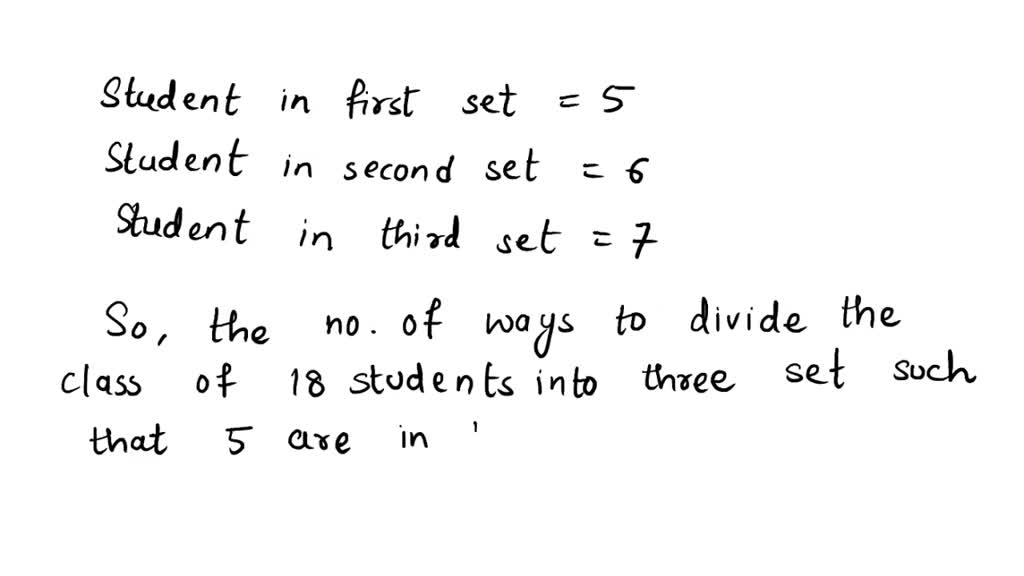 Student in first set = 5
Student in second set = 6
Student in third set = 7
So, the no. of ways to divide the
class of 18 students into three set such
that 5 are in '